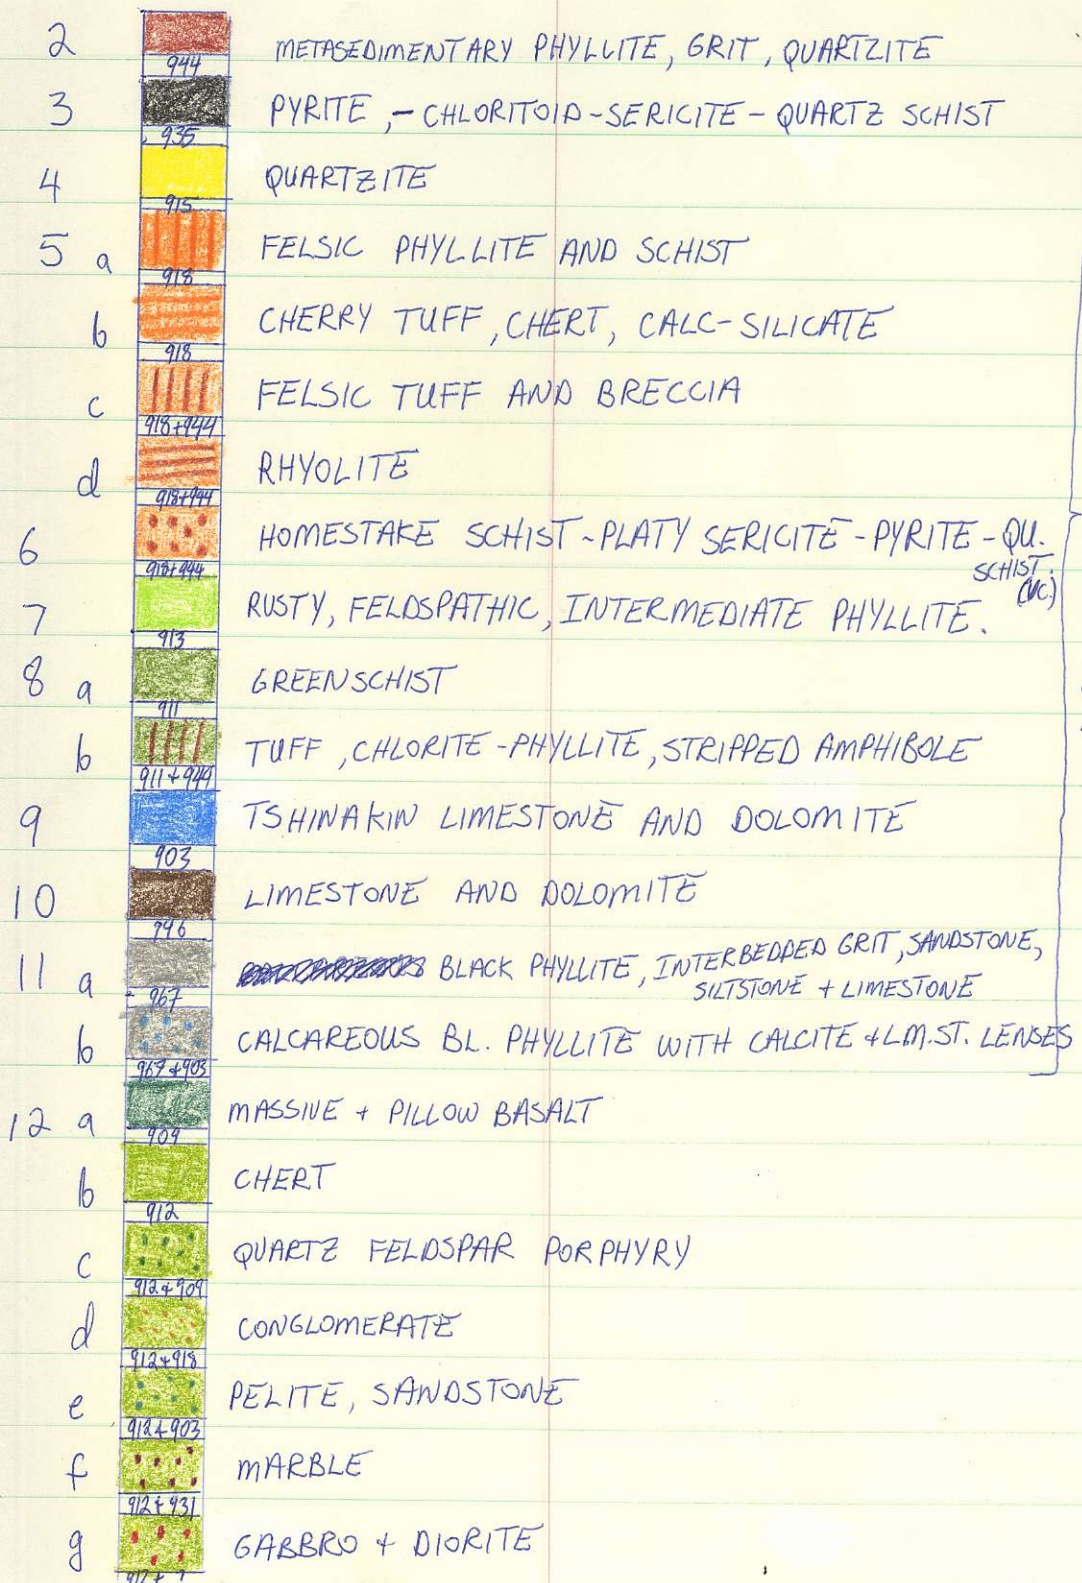 2 METASEDIMENTARY PHYLLITE, GRIT, QUARTZITE
944
3 PYRITE,-CHLORITOID-SERICITE-QUARTZ SCHIST
935
4 QUARTZITE
915
5 a FELSIC PHYLLITE AND SCHIST
918
b CHERRY TUFF, CHERT, CALC-SILICATE
918
c FELSIC TUFF AND BRECCIA
918+944
d RHYOLITE
918+944
6 HOMESTAKE SCHIST-PLATY SERICITE-PYRITE-QU.
SCHIST.
918+944
7 RUSTY, FELDSPATHIC, INTERMEDIATE PHYLLITE.
913
8 a GREENSCHIST
911
b TUFF, CHLORITE-PHYLLITE, STRIPPED AMPHIBOLE
911+944
9 TSHINAKIN LIMESTONE AND DOLOMITE
903
10 LIMESTONE AND DOLOMITE
946
11 a BLACK PHYLLITE, INTERBEDDED GRIT, SANDSTONE,
SILTSTONE + LIMESTONE
967
b CALCAREOUS BL. PHYLLITE WITH CALCITE + LM.ST. LENSES
967+903
12 a MASSIVE + PILLOW BASALT
909
b CHERT
912
c QUARTZ FELDSPAR PORPHYRY
912+909
d CONGLOMERATE
912+918
e PELITE, SANDSTONE
912+903
f MARBLE
912+931
g GABBRO + DIORITE
912+